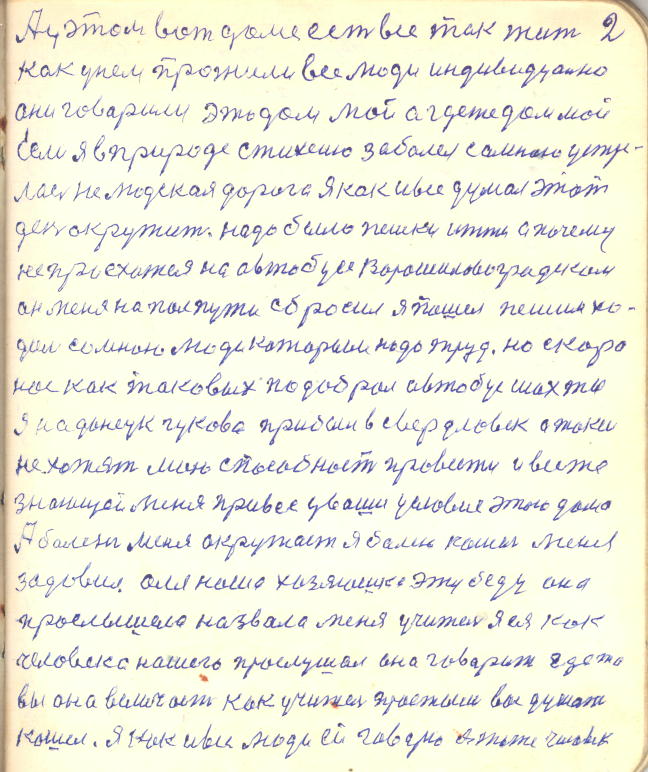 А у этом вот доме есть все так жит 2
как у нем прожили все люди индивидуально
они говарили это дом мой а где же дом мой
Если я в природе стихею заболел самною устре-
лась не людская дорога Я как и все думал этот
ден окружит. надо было пешки итти а почему
не приехожея на автобусе Ворошиловоградском
он меня на полпути сбросил я пошел пешим хо-
дом самною люди каторым надо труд. но скоро
нас как таковых подобрал автобус шахты
Я на донсук чукова прибыл в свердловск а таки
не хотят мою способност провести и все же
знающей меня привес у ваши условие этого дома
А болезн меня окружает я балею кашел меня
задовил. оля наша хозяюшка эту беду она
прослышала назвала меня учител я ея как
человека нашего прослушал она говарит где то
вы она величает как учител простыли вас душит
кашел. Я как и все люди ей говарю я тоже человек